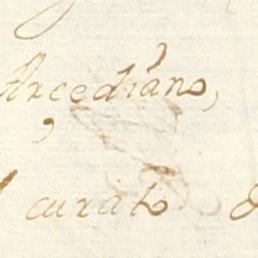 Arcediano,
curato